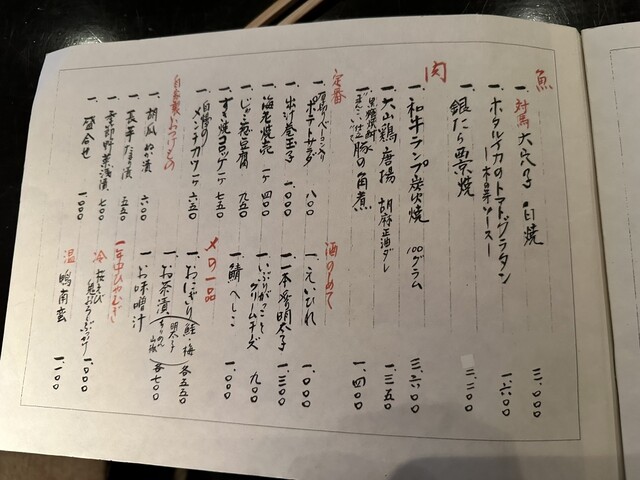 魚
一、対馬 大穴子 白焼 三、〇〇〇
一、ホタルイカのトマトグラタン
ソース 一、六〇〇
一、銀たら 西京焼 二、二〇〇
肉
一、和牛ランプ炭火焼 100グラム 三、六〇〇
一、大山鶏 唐揚 胡麻正油ダレ 一、三五〇
一、黒糖焼酎 仕立 豚の角煮 一、四〇〇
定番
一、厚切ベーコン入り ポテトサラダ 八〇〇
一、出汁巻玉子 一、〇〇〇
一、海老焼売 一ヶ 四〇〇
一、じゃこ葱豆腐 九五〇
一、すき焼コロッケ 一ヶ 七五〇
一、自慢の メンチカツ 一ヶ 六五〇
自家製おつけもの
一、胡瓜 ぬか漬 六〇〇
一、長芋 たまり漬 五五〇
一、季節野菜 浅漬 七〇〇
一、盛合せ 一、〇〇〇
酒のあて
一、えいひれ 一、〇〇〇
一、一本 明太子 一、三〇〇
一、いぶりがっこと クリームチーズ 九〇〇
一、鯖へしこ 一、〇〇〇
〆の一品
一、おにぎり 鮭・梅 明太子 各五五〇
一、お茶漬 各七〇〇
一、お味噌汁
一年中ひやむぎ
冷 桜えび 鬼おろしぶっかけ 一、〇〇〇
温 鴨南蛮 一、一〇〇